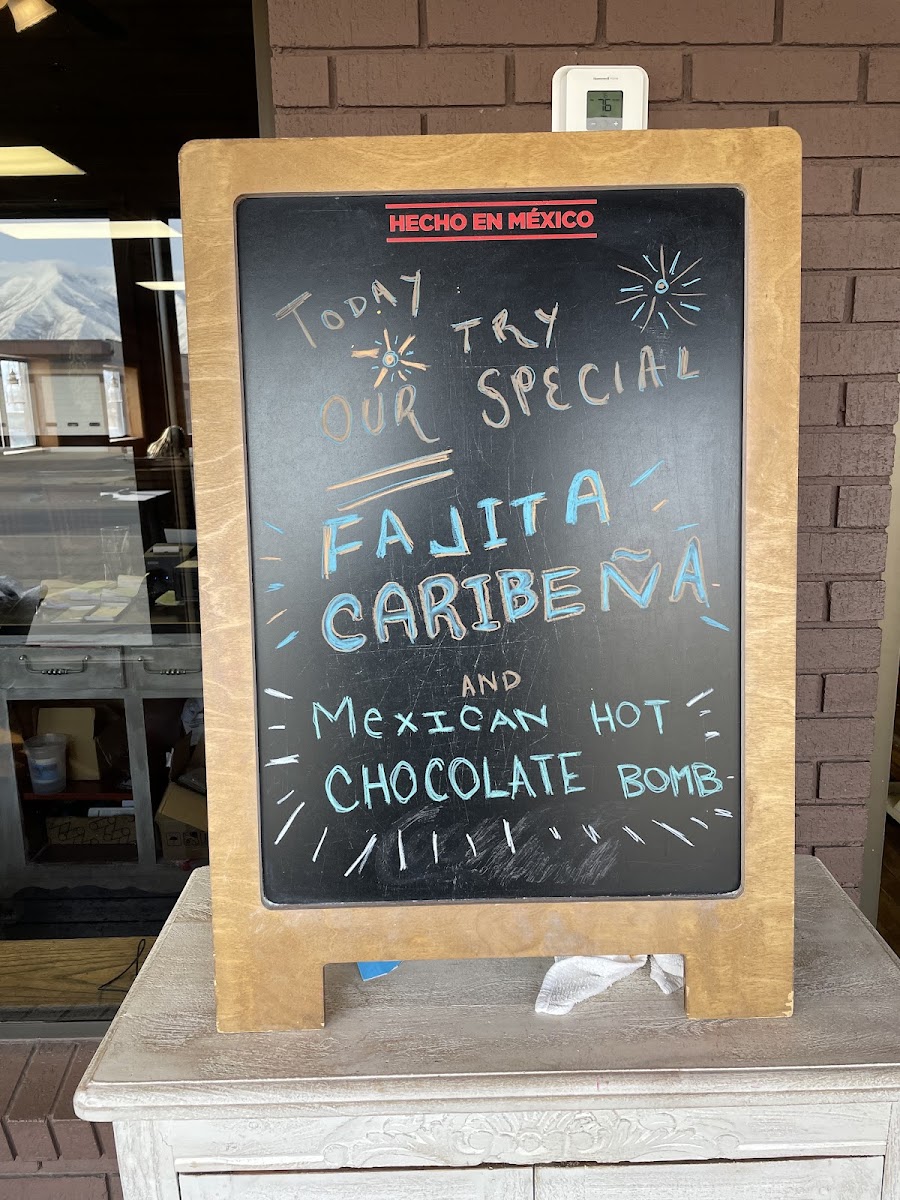 76
HECHO EN MÉXICO
TODAY TRY
OUR SPECIAL
FAJITA
CARIBEÑA
AND
MEXICAN HOT
CHOCOLATE BOMB